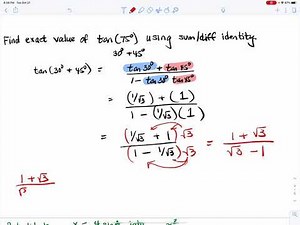 Find exact value of tan(75°) using sum/diff identity.
30° + 45°
tan(30° + 45°) = tan 30° + tan 45° / 1 - tan 30° tan 45°
= (1/√3) + (1) / 1 - (1/√3)(1)
= (1/√3 + 1)√3 / (1 - 1/√3)√3 = 1 + √3 / √3 - 1
1 + √3 / √3